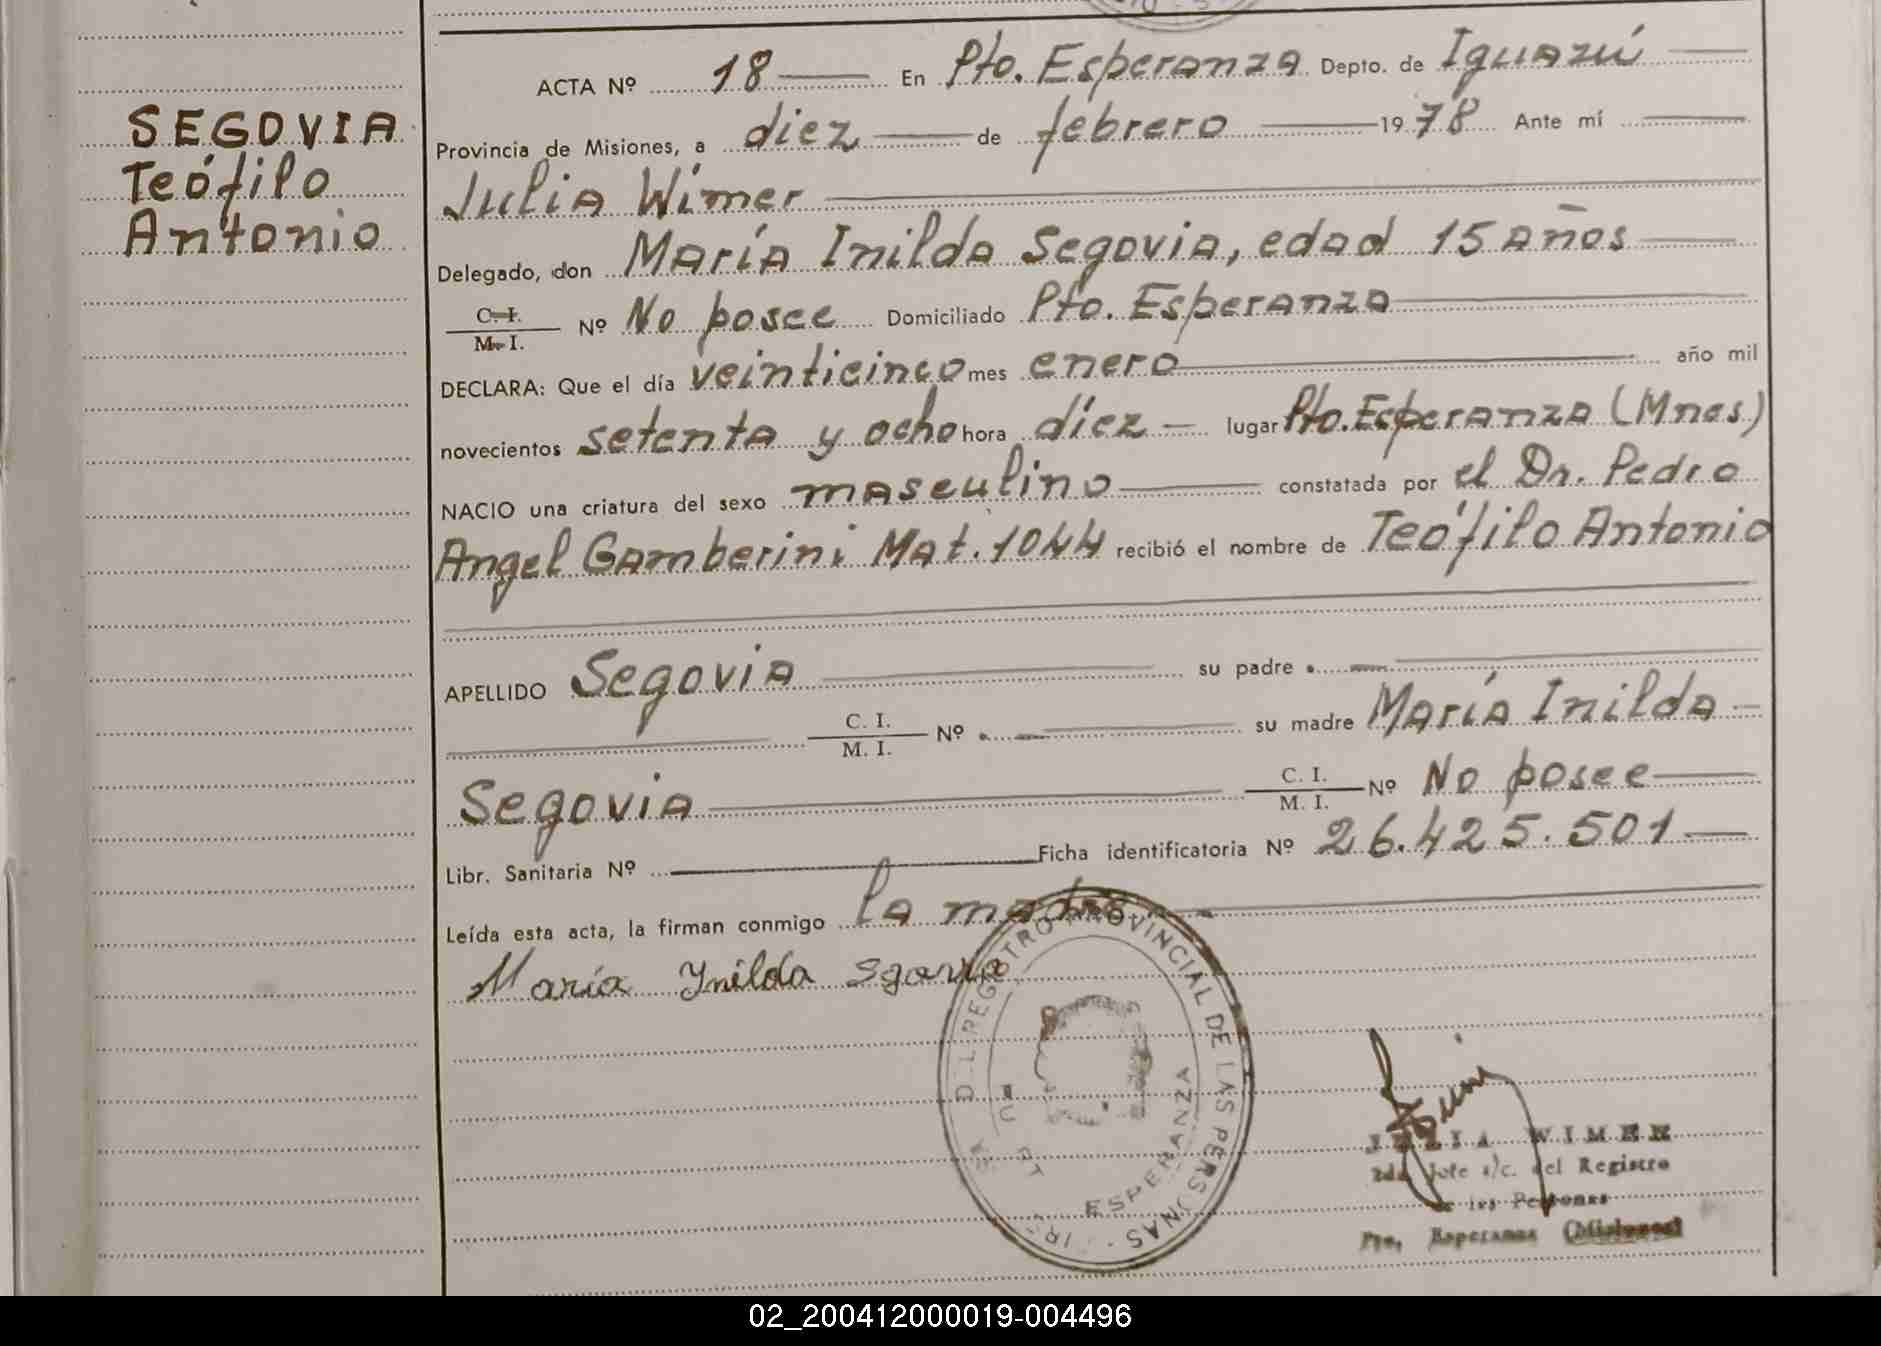 SEGOVIA
Teófilo
Antonio
ACTA Nº 18 En Pto. Esperanza Depto. de Iguazú
Provincia de Misiones, a diez de febrero 1978 Ante mí
Julia Wimer
Delegado, don María Inilda Segovia, edad 15 años
C. I. / M. I. Nº No posee Domiciliado Pto. Esperanza
DECLARA: Que el día veinticinco mes enero año mil
novecientos setenta y ocho hora diez lugar Pto. Esperanza (Mnes.)
NACIO una criatura del sexo masculino constatada por el Dr. Pedro
Angel Gamberini Mat. 1044 recibió el nombre de Teófilo Antonio
APELLIDO Segovia su padre
C. I. / M. I. Nº su madre María Inilda
Segovia C. I. / M. I. Nº No posee
Libr. Sanitaria Nº Ficha identificatoria Nº 26.425.501
Leída esta acta, la firman conmigo la madre.
María Ynilda Sgovia
DEL REGISTRO PROVINCIAL DE LAS PERSONAS
ESPERANZA
JULIA WIMER
2da Jefe a/c. del Registro
de las Personas
Pto. Esperanza (Misiones)
02_200412000019-004496